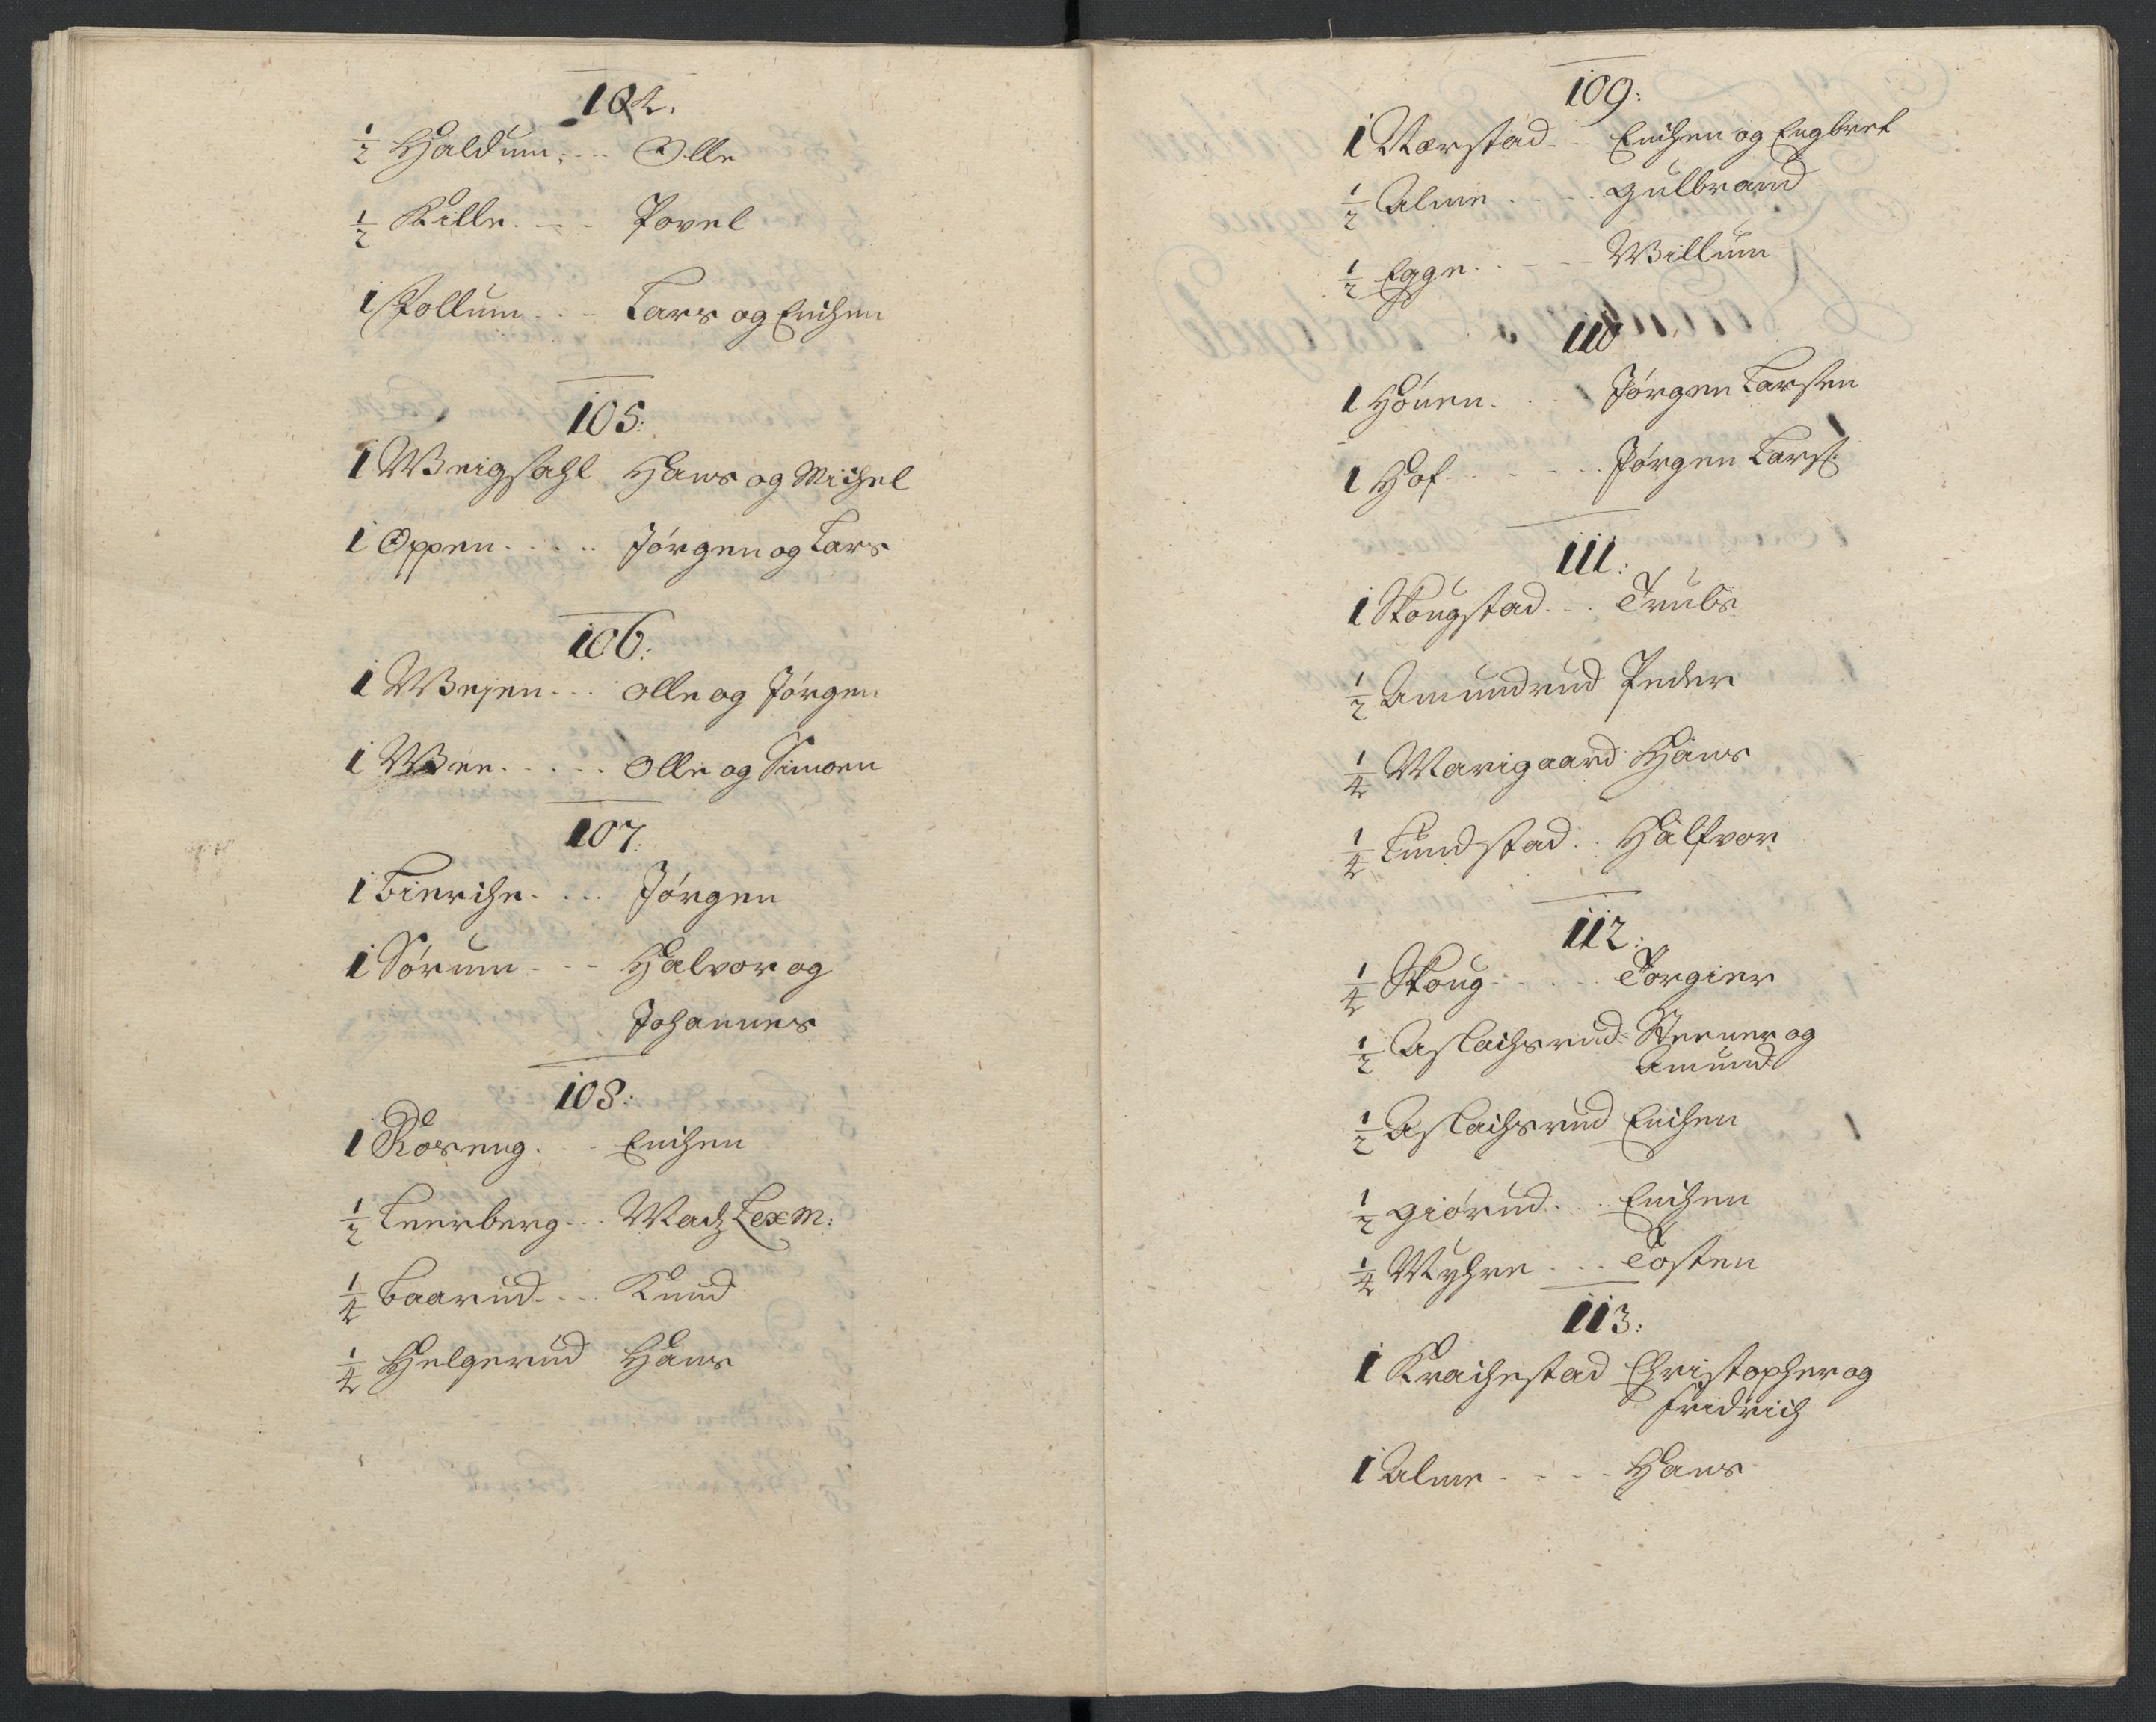 104.
1/2 Haldum. Olle
1/2 Kille. Povel
1 Follum Lars og Erichen
105:
1 Weigsahl Hans og Michel
1 Oppen. Jørgen og Lars
106:
1 Wejen. Olle og Jørgen
1 Wee. Olle og Simoen
107:
1 Bierche. Jørgen
1 Sørum Halvor og
Johannes
108:
1 Røseng. Erichen
1/2 Leerberg. Madz LexM:
1/4 Baarud. Knud
1/4 Helgerud Hans
109:
1 Nærstad. Erichen og Engbret
1/2 Alme Gulbrand
1/2 Egge. Willum
110
1 Hønen. Jørgen Larsen
1 Hof Jørgen Lars:
111:
1 Skougstad. Truls
1/2 Amundrud Peder
1/4 Marigaard Hans
1/4 Lundstad. Halfvor
112:
1/4 Skoug Torgier
1/2 Aslachsrud Steener og
Amund
1/2 Aslachsrud Erichen
1/2 Giørud. Erichen
1/4 Myhre Tosten
113:
1 Krachestad Christopher og
Fridrich
1 Alme Hans